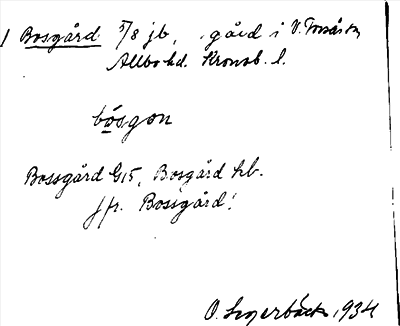 1 Bosgård 5/8 jb, gård i V. Torsås sn
Allbo hd. Kronob. l.
bósgon
Bossgård G15, Bosgård hb.
jfr. Bossgård!
O. 1934